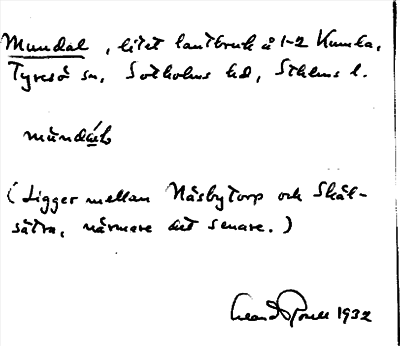 Mundal, litet lantbruk å 1-2 Kumla,
Tyresö sn, Sotholms hd, Sthlms l.
mùndá̱l
(Ligger mellan Näsbytorp och Skål-
sätra, närmare det senare.)
1932